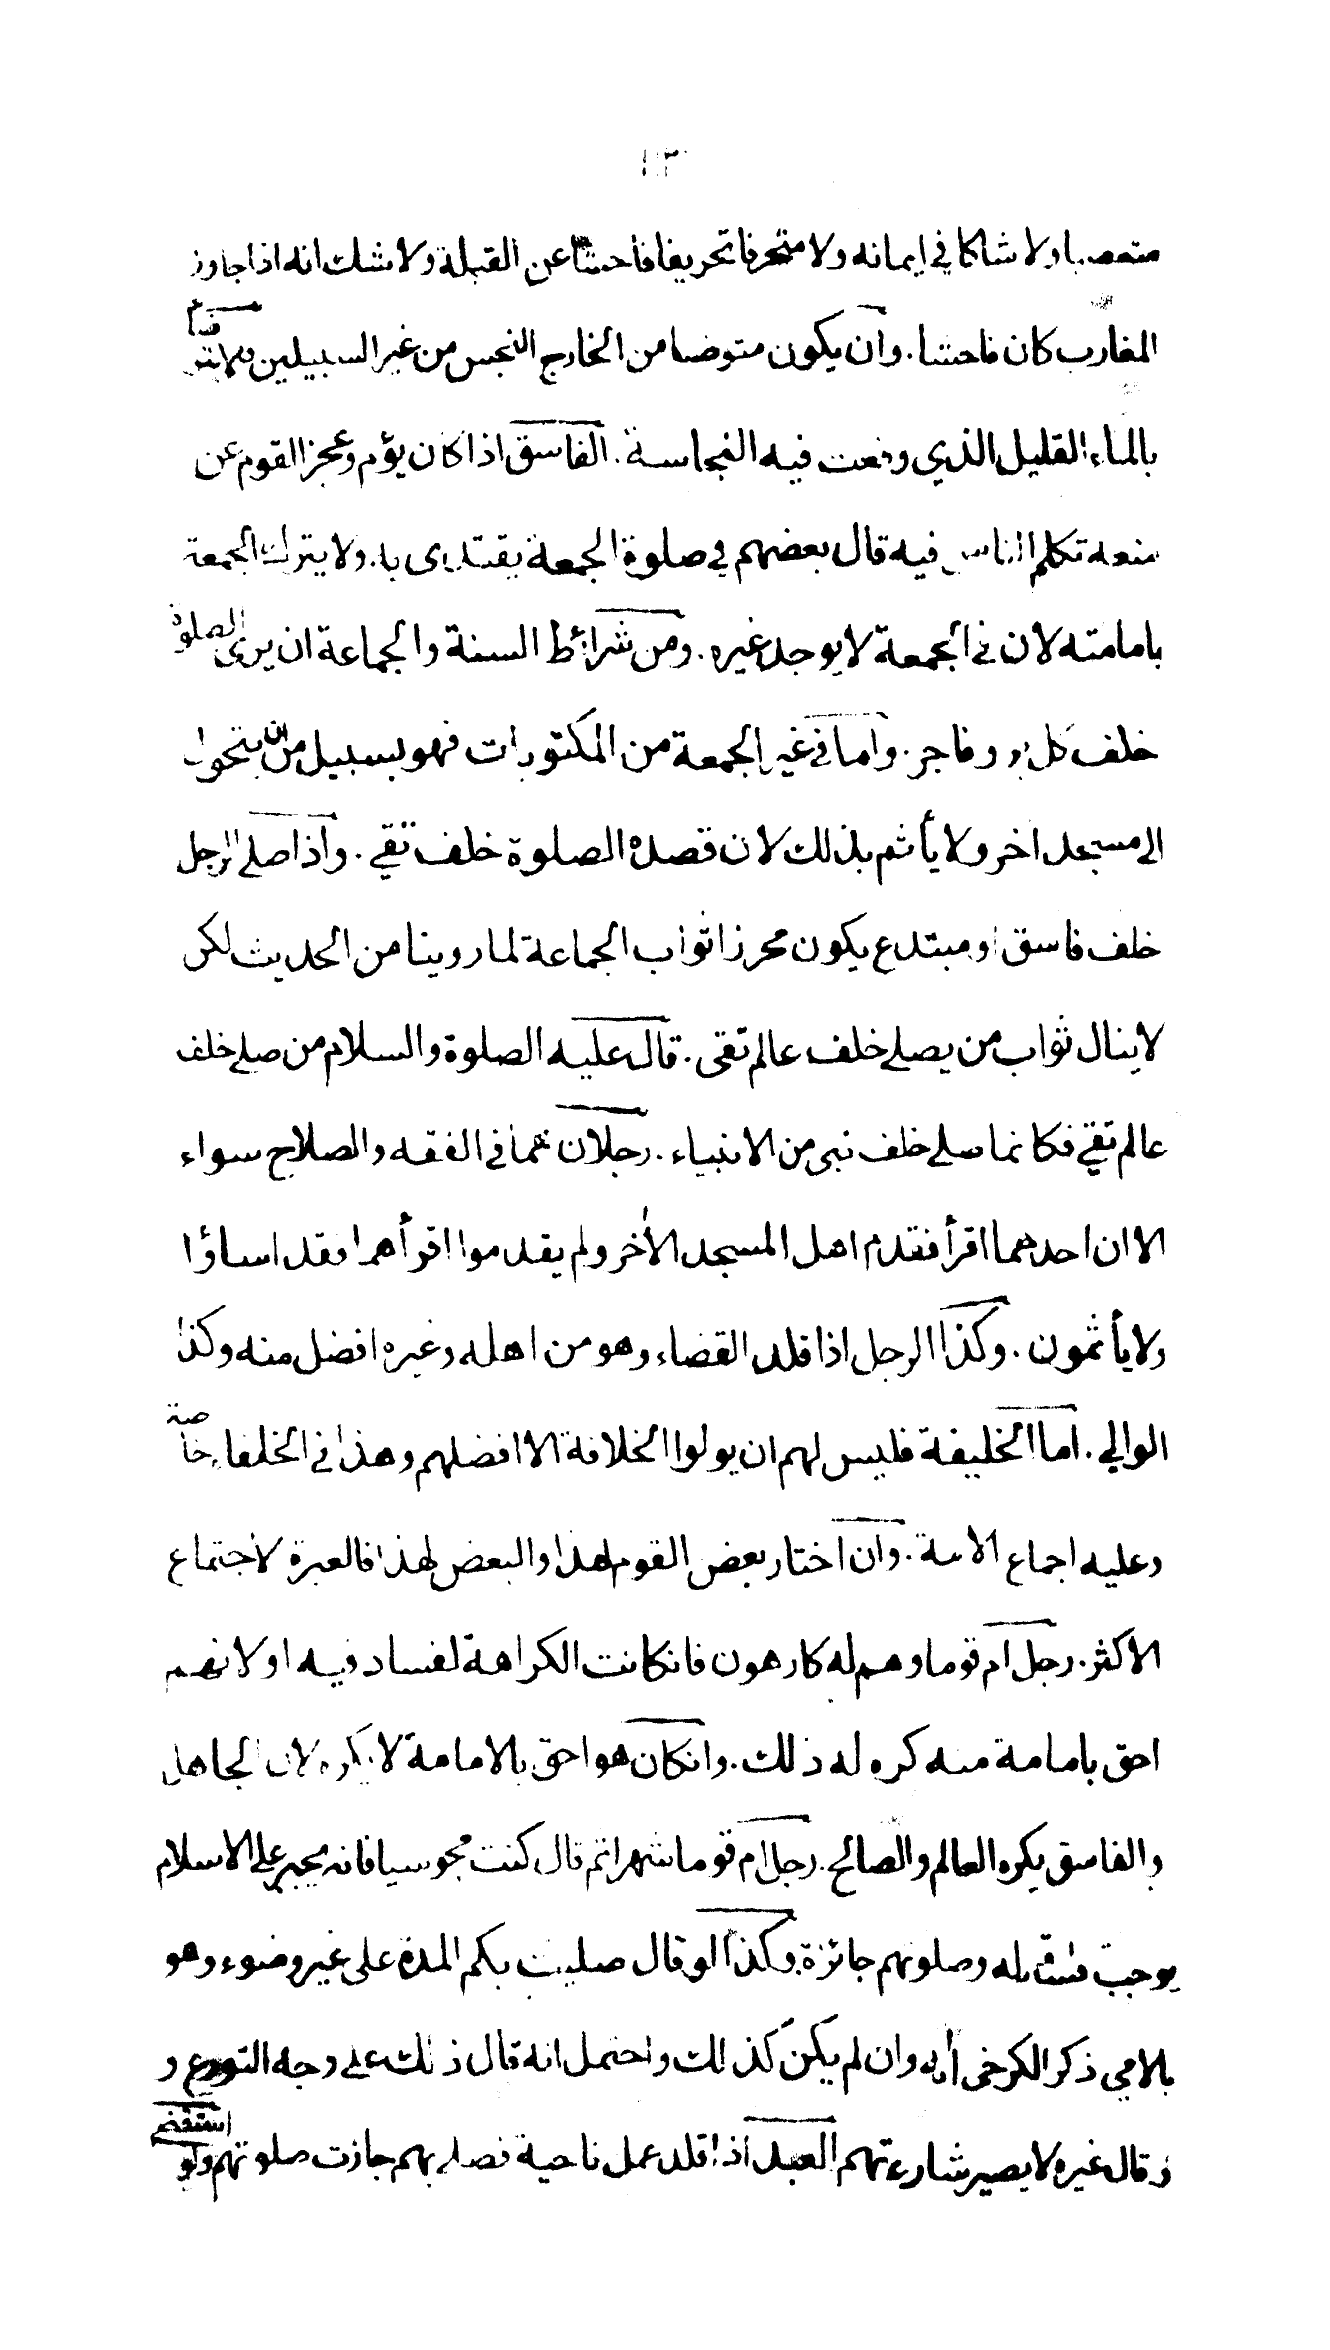 ١٠٣
متعصبا ولا شاكا في ايمانه ولا منحرفا تحريفا فاحشا عن القبلة ولا شك انه اذا جاوز
المغارب كان فاحشا . وان يكون متوضا من الخارج النجس من غير السبيلين ولا يتوضأ
بالماء القليل الذي وقعت فيه النجاسة . الفاسق اذا كان يؤم وعجز القوم عن
منعه تكلم الناس فيه قال بعضهم في صلوة الجمعة يقتدى به ولا يترك الجمعة
بامامته لان في الجمعة لا يوجد غيره . ومن شرائط السنة والجماعة ان يرى الصلوة
خلف كل بر وفاجر . واما في غير الجمعة من المكتوبات فهو بسبيل من ان يتحول
الى مسجد اخر ولا يأثم بذلك لان قصده الصلوة خلف تقي . واذا صلى الرجل
خلف فاسق او مبتدع يكون محرزا ثواب الجماعة لما روينا من الحديث لكن
لا ينال ثواب من يصلي خلف عالم تقى . قال عليه الصلوة والسلام من صلى خلف
عالم تقي فكانما صلى خلف نبى من الانبياء . رجلان هما في الفقه والصلاح سواء
الا ان احدهما اقرأ فقدم اهل المسجد الأخر ولم يقدموا اقرأهما فقد اساؤا
ولا يأثمون . وكذا الرجل اذا قلد القضاء وهو من اهله وغيره افضل منه وكذا
الوالي . اما الخليفة فليس لهم ان يولوا الخلافة الا افضلهم وهذا في الخلفاء خاصة
وعليه اجماع الامة . وان اختار بعض القوم لهذا والبعض لهذا فالعبرة لاجتماع
الاكثر . رجل ام قوما وهم له كارهون فانكانت الكراهة لفساد فيه او لانهم
احق بامامة منه كره له ذلك . وانكان هو احق بالامامة لا يكره لان الجاهل
والفاسق يكره العالم والصالح . رجل ام قوما شهرا ثم قال كنت مجوسيا فانه يجبر على الاسلام
يوجب قتاله وصلوتهم جائزة وكذا لو قال صليت بكم المدة على غير وضوء وهو
بالامي ذكر الكرخي أنه وان لم يكن كذلك واحتمل انه قال ذلك على وجه التورع و
وقال غيره لا يصير شارعتهم العبد اذا قلد عمل ناحية فصلى بهم جازت صلوتهم ولو استقضى